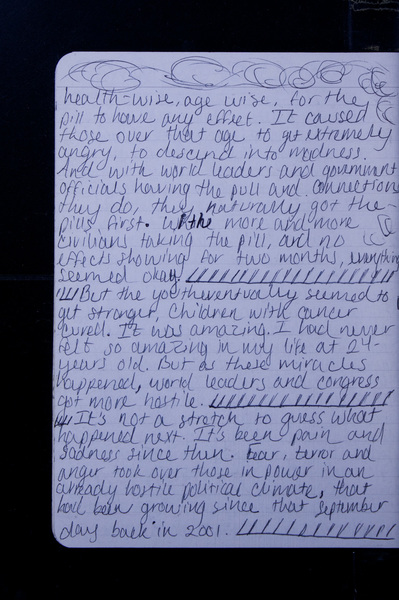 health-wise, age wise, for the
pill to have any effect. It caused
those over that age to get extremely
angry, to descend into madness.
And with world leaders and government
officials having the pull and connections
they do, they naturally got the
pills first. W/ the more and more
civilians taking the pill, and no
effects showing for two months, everything
seemed okay.
But the youth eventually seemed to
get stronger. Children with cancer
cured. It was amazing. I had never
felt so amazing in my life at 24-
years old. But as these miracles
happened, world leaders and congress
got more hostile.
It's not a stretch to guess what
happened next. It's been pain and
sadness since then. Fear, terror and
anger took over those in power in an
already hostile political climate, that
had been growing since that september
day back in 2001.